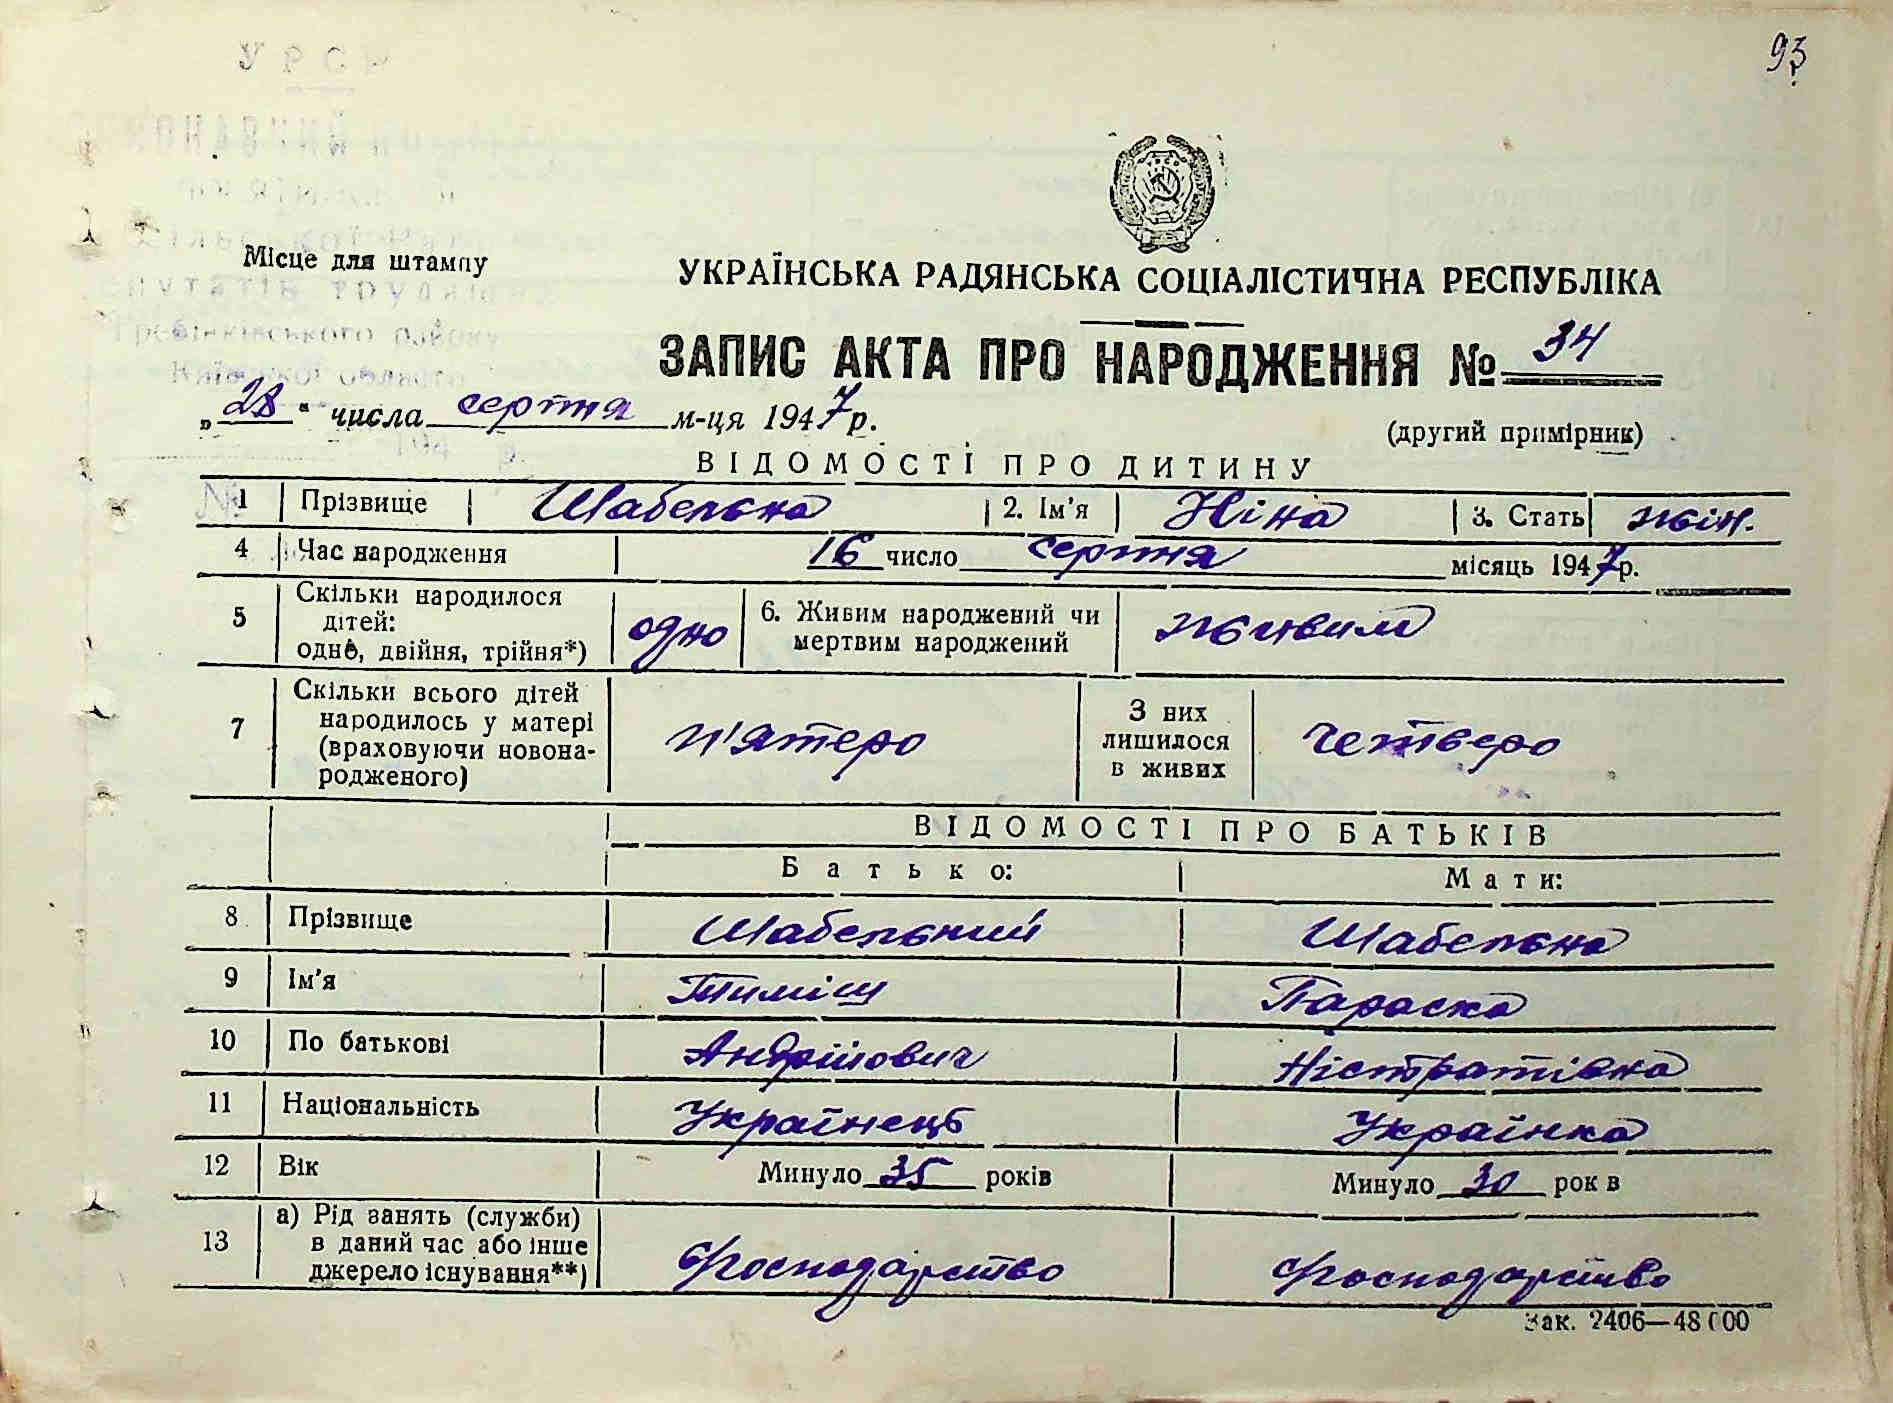 93
УРСР
Місце для штампу
Гребінківського району
Київської області
УКРАЇНСЬКА РАДЯНСЬКА СОЦІАЛІСТИЧНА РЕСПУБЛІКА
ЗАПИС АКТА ПРО НАРОДЖЕННЯ № 34
„28“ числа серпня м-ця 1947 р.
(другий примірник)
ВІДОМОСТІ ПРО ДИТИНУ
1 Прізвище Шабельна 2. Ім'я Ніна 3. Стать жін.
4 Час народження 16 число серпня місяць 1947 р.
5 Скільки народилося дітей: одне, двійня, трійня*) одно 6. Живим народжений чи мертвим народжений живим
7 Скільки всього дітей народилось у матері (враховуючи новона-родженого) п'ятеро З них лишилося в живих четверо
ВІДОМОСТІ ПРО БАТЬКІВ
Батько: Мати:
8 Прізвище Шабельний Шабельна
9 Ім'я Тиміш Параска
10 По батькові Андрійович Ністратівна
11 Національність Українець Українка
12 Вік Минуло 35 років Минуло 30 рок в
13 а) Рід занять (служби) в даний час або інше джерело існування**) Господарство Господарство
Зак. 2406—48000